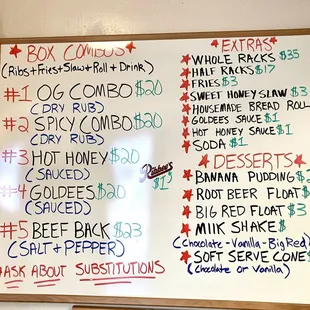 BOX COMBOS
(Ribs+Fries+Slaw+Roll+Drink)
#1 OG COMBO $20
(DRY RUB)
#2 SPICY COMBO $20
(DRY RUB)
#3 HOT HONEY $20
(SAUCED)
#4 GOLDEES $20
(SAUCED)
#5 BEEF BACK $23
(SALT + PEPPER)
*ASK ABOUT SUBSTITUTIONS
EXTRAS
WHOLE RACKS $35
HALF RACKS $17
FRIES $3
SWEET HONEY SLAW $3
HOUSEMADE BREAD ROLL
GOLDEES SAUCE $1
HOT HONEY SAUCE $1
SODA $1
DESSERTS
BANANA PUDDING
ROOT BEER FLOAT $
BIG RED FLOAT $3
MIlK SHAKE $
(Chocolate - Vanilla - Big Red)
SOFT SERVE CONE $
(Chocolate or Vanilla)